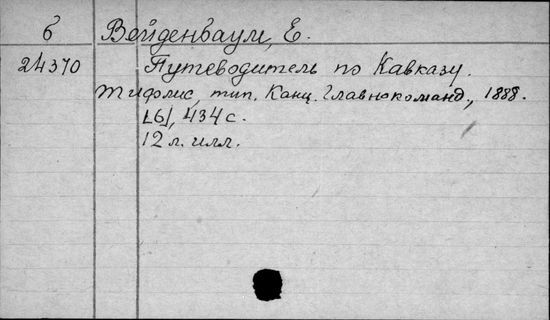 б Вейденбаум, Е.
24370 Путеводитель по Кавказу.
Тифлис, тип. Канц. Главнокоманд., 1888.
[6], 434 с.
12 л. илл.